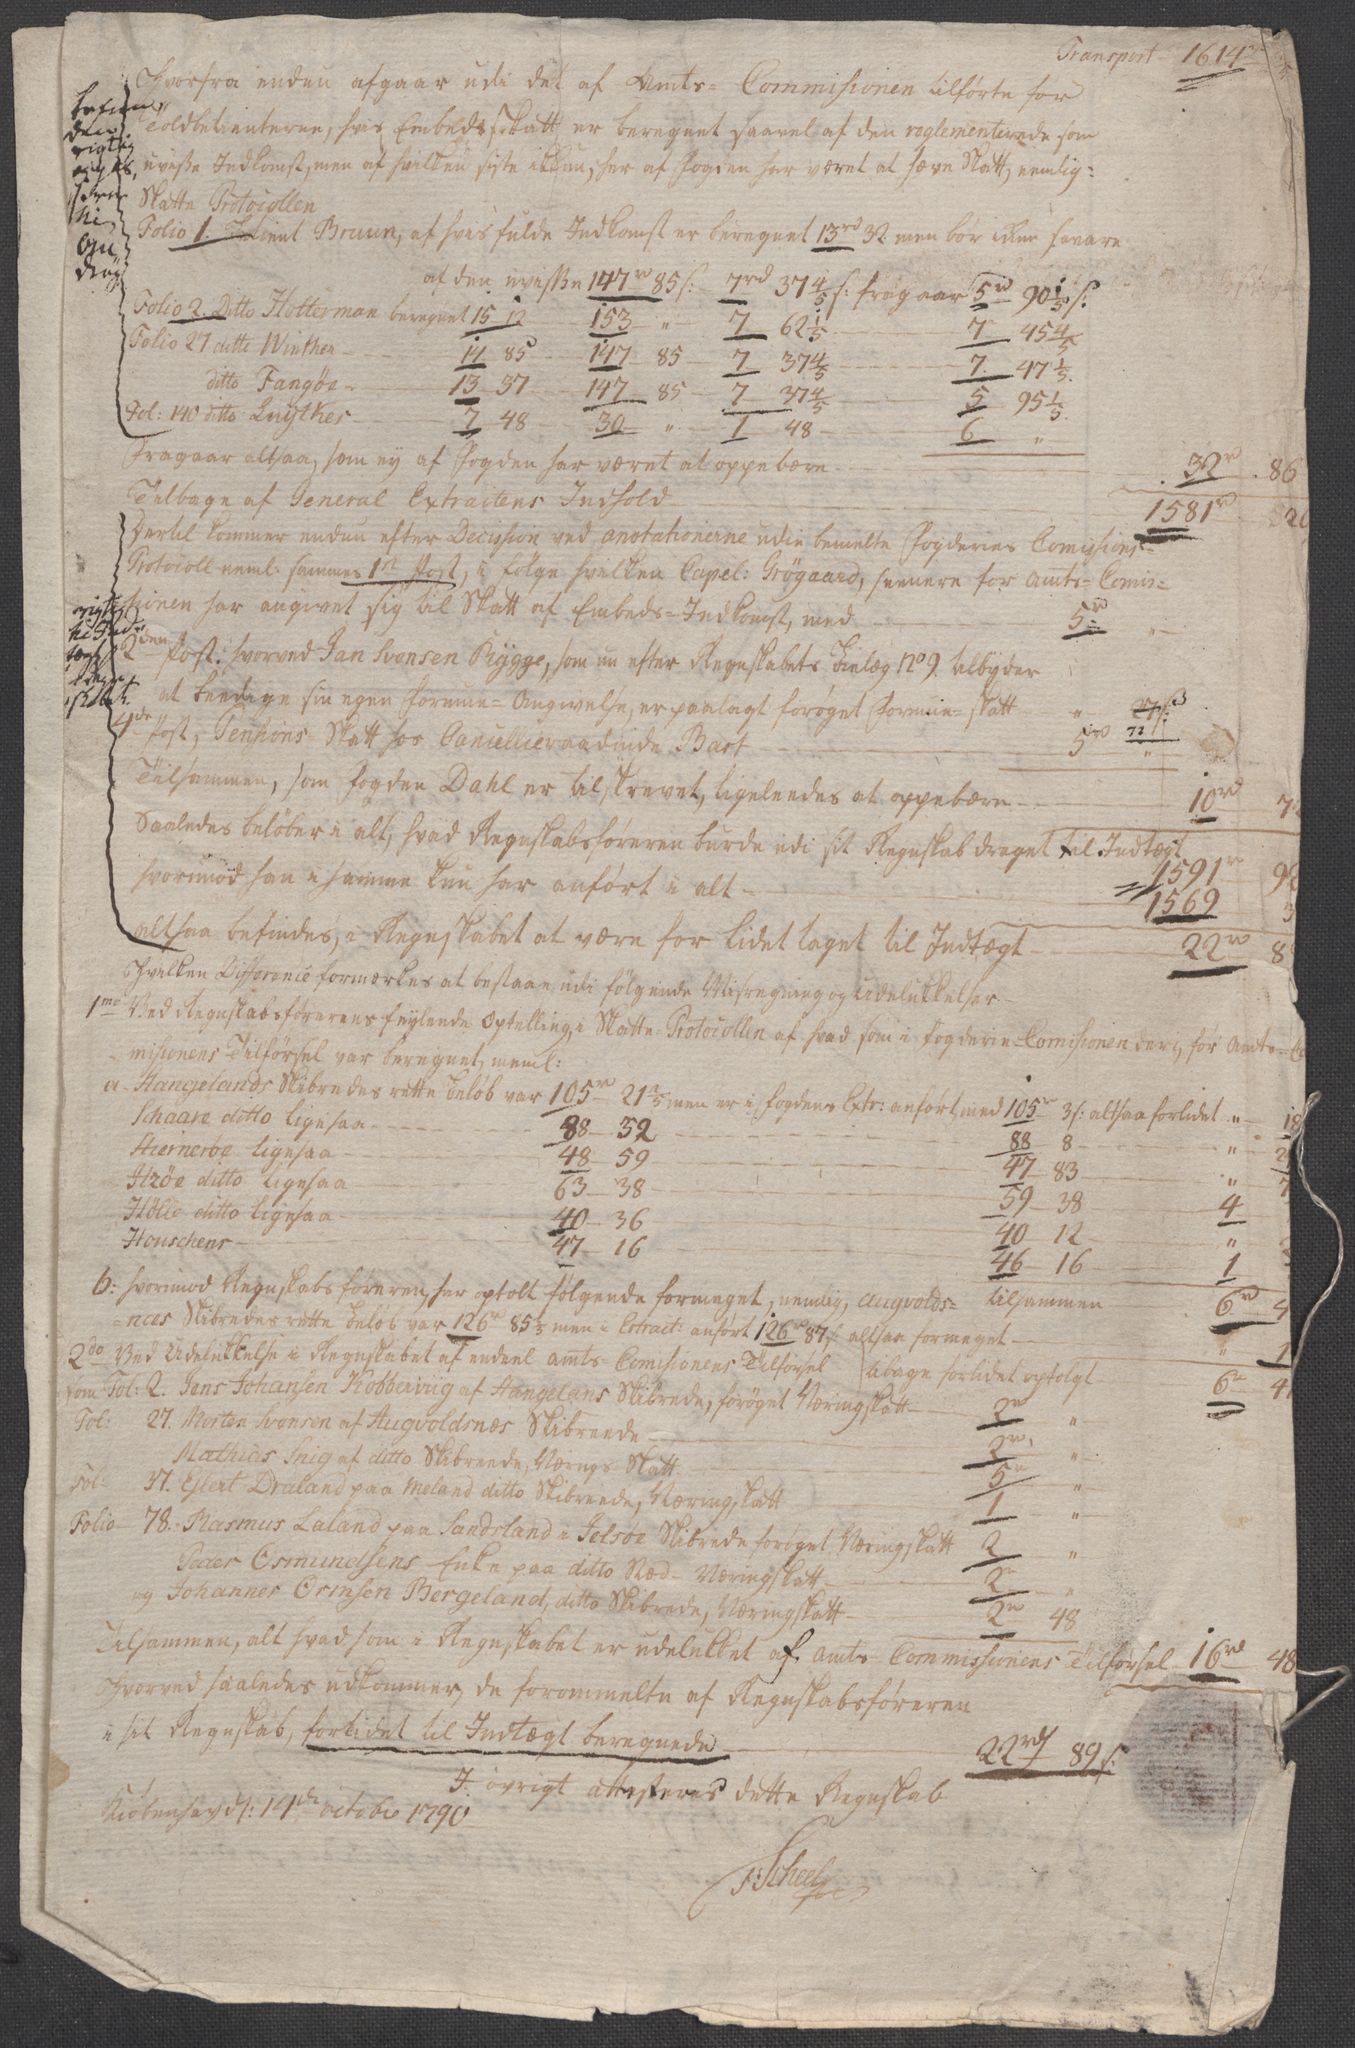 Transport 1614rd
Hvorfra endnu afgaar udi det af Amts-Commissionen tilførte for
Toldbetienterne, hvis Embeds-Skatt er beregnet saavel af den reglementerede som
uvisse Indkomst, men af hvilken siste ikkun, her af Fogden har været at hæve Skatt, nemlig:
Skatte Protocollen
Folio 1. Bruun, af hvis fulde Indkomst er beregnet 13rd 32 men bør svare
af den uvisse 147rd 85s: 7rd 37 4/5 s: fragaar 5rd 90 1/5 s.
Folio 2. Ditto Hotterman beregnet 15 12 153 " 7 62 1/5 7 45 4/5
Folio 27 ditto Winther 14 85 147 85 7 37 4/5 7 47 1/5
ditto Fangøe 13 37 147 85 7 37 4/5 5 95 1/5
Fol: 140 ditto Luytkes 7 48 30 " 1 48 6 "
Fragaar altsaa, som ey af Fogden har været at oppebære 32rd 86
Tilbage af General Extractens Indhold 1581rd
Dertil kommer endnu efter Decission ved anotationerne udi bemelte Fogderies Comissions-
Protocoll neml: sammes 1st Post, i følge hvilken Capel: Grøgaard, for Amts-Comis-
sionen har angivet sig til Skatt af Embeds-Indkomst, med 5rd "
2den Post: hvorved Jan Svensen Rygge, som nu efter Regnskabets Bielag No 9. tilbyder
at beedige sin egen Formue-Angivelse, er paalagt forøget Formue-Skatt " 72
4de Post, Pensions-Skatt hos Cancellieraadinde Bart 5rd "
Tilsammen, som Fogden Dahl er tilskrevet, ligeledes at oppebære 10rd 7
Saaledes beløber i alt, hvad Regnskabsføreren burde udi sit Regnskab draget til Indtægt
1591rd 92
hvorimod han i samme kun har anført i alt 1569 3
altsaa befindes, i Regnskabet at være for lidet taget til Indtægt 22rd 8
Hvilken Difference formærkes at bestaae udi følgende Misregning og Udelukkelser
1mo Ved Regnskabsførerens feylende Optelling i Skatte-Protocollen af hvad som i Fogderie-Comisionen der, før Amts-Co
misionens Tilførsel var beregnet, neml:
a. Hangelands Skibredes rette Beløb var 105rd 21 men er i Fogdens Extr: anført med 105rd 3s: altsaa forlidet " 18
Schaare ditto ligesaa 88 32 88 8 " 2
Hiernerøe ligesaa 48 59 47 83 " 7
Hzøe ditto ligesaa 63 38 59 38 4
Hølle ditto ligesaa 40 36 40 12 " 2
Houschens 47 16 46 16 1
b: hvorimod Regnskabsføreren har optelt følgende formeget, nemlig, Augvolds- tilsammen 6rd 4
næs Skibredes rette Beløb var 126rd 85 men i Extract: anført 126rd 87s altsaa formeget " 1
2do Ved Udelukkelse i Regnskabet af endeel Amts-Comisionens Tilførsel tilbage forlidet optolgt 6rd 4
som Fol: 2. Jens Johansen Kobbervig af Hangelans Skibrede, forøget Næringskatt 2rd "
Fol: 27. Morten Svensen af Augvoldsnæs Skibreede 2rd "
Mathias Snig af ditto Skibreede, Nærings Skatt 5rd "
Fol: 37. Eglert Draland paa Meland ditto Skibreede, Næringskatt 1 "
Folio 78. Rasmus Laland paa Sandsland i Jelsøe Skibrede forøget Næringskatt 2 "
Peder Osmundsens Enke paa ditto Næringskatt 2rd "
og Johannes Ormsen Bergeland, ditto Skibrede, Næringskatt 2rd 48
Tilsammen, alt hvad som i Regnskabet er udelukket af Amts Commissionens Tilførsel 16rd 48
Hvorved saaledes udkommer, de forommeldte af Regnskabsføreren
i sit Regnskab, forlidet til Indtægt beregnede 22rd 89s.
I øvrigt attesteres dette Regnskab
Kiøbenhavn d: 14de octobr 1790
Scheel